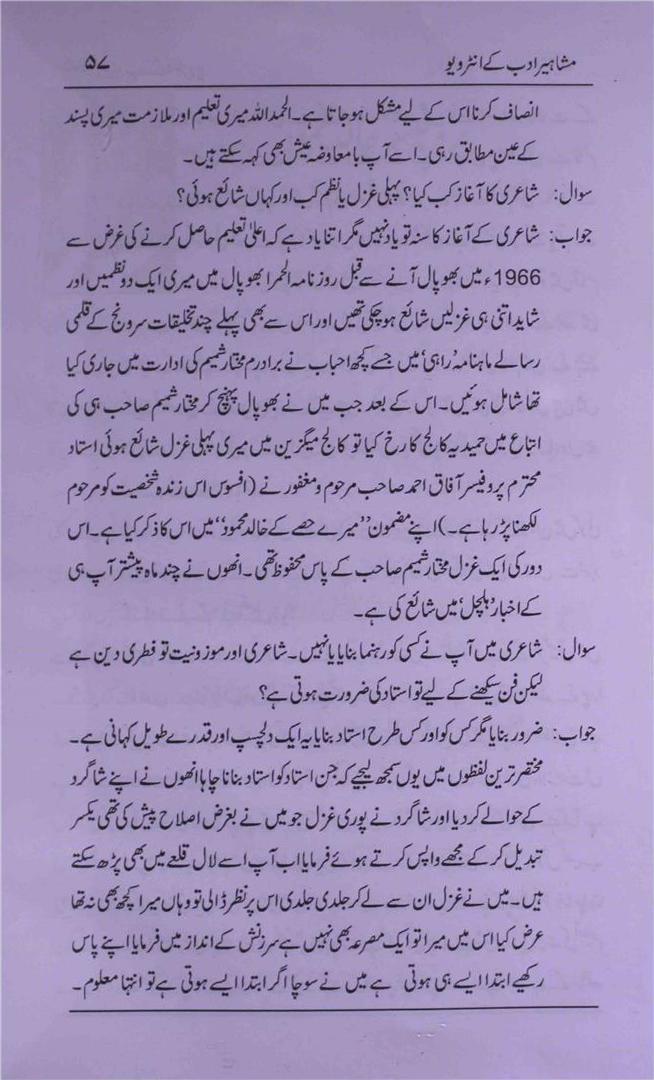 مشاہیر ادب کے انٹرویو ۵۷
انصاف کرنا اس کے لیے مشکل ہو جاتا ہے۔ الحمد اللہ میری تعلیم اور ملازمت میری پسند
کے عین مطابق رہی۔ اسے آپ با معاوضہ عیش بھی کہہ سکتے ہیں۔
سوال: شاعری کا آغاز کب کیا؟ پہلی غزل یا نظم کب اور کہاں شائع ہوئی؟
جواب: شاعری کے آغاز کا سنہ تو یاد نہیں مگر اتنا یاد ہے کہ اعلیٰ تعلیم حاصل کرنے کی غرض سے
1966ء میں بھوپال آنے سے قبل روزنامہ الحمرا بھوپال میں میری ایک دو نظمیں اور
شاید اتنی ہی غزلیں شائع ہو چکی تھیں اور اس سے بھی پہلے چند تخلیقات سرونج کے قلمی
رسالے ماہنامہ 'راہی' میں جسے کچھ احباب نے برادرم مختار شمیم کی ادارت میں جاری کیا
تھا شامل ہوئیں۔ اس کے بعد جب میں نے بھوپال پہنچ کر مختار شمیم صاحب ہی کی
اتباع میں حمیدیہ کالج کا رخ کیا تو کالج میگزین میں میری پہلی غزل شائع ہوئی استاد
محترم پروفیسر آفاق احمد صاحب مرحوم و مغفور نے (افسوس اس زندہ شخصیت کو مرحوم
لکھنا پڑ رہا ہے۔) اپنے مضمون ''میرے حصے کے خالد محمود'' میں اس کا ذکر کیا ہے۔ اس
دور کی ایک غزل مختار شمیم صاحب کے پاس محفوظ تھی۔ انھوں نے چند ماہ پیشتر آپ ہی
کے اخبار 'ہلچل' میں شائع کی ہے۔
سوال: شاعری میں آپ نے کسی کو رہنما بنایا یا نہیں۔ شاعری اور موزونیت تو فطری دین ہے
لیکن فن سیکھنے کے لیے تو استاد کی ضرورت ہوتی ہے؟
جواب: ضرور بنایا مگر کس کو اور کس طرح استاد بنایا یہ ایک دلچسپ اور قدرے طویل کہانی ہے۔
مختصر ترین لفظوں میں یوں سمجھ لیجیے کہ جن استاد کو استاد بنانا چاہا انھوں نے اپنے شاگرد
کے حوالے کر دیا اور شاگرد نے پوری غزل جو میں نے بغرض اصلاح پیش کی تھی یکسر
تبدیل کر کے مجھے واپس کرتے ہوئے فرمایا اب آپ اسے لال قلعے میں بھی پڑھ سکتے
ہیں۔ میں نے غزل ان سے لے کر جلدی جلدی اس پر نظر ڈالی تو وہاں میرا کچھ بھی نہ تھا
عرض کیا اس میں میرا تو ایک مصرعہ بھی نہیں ہے سرزنش کے انداز میں فرمایا اپنے پاس
رکھیے ابتدا ایسے ہی ہوتی ہے میں نے سوچا اگر ابتدا ایسے ہوتی ہے تو انتہا معلوم۔